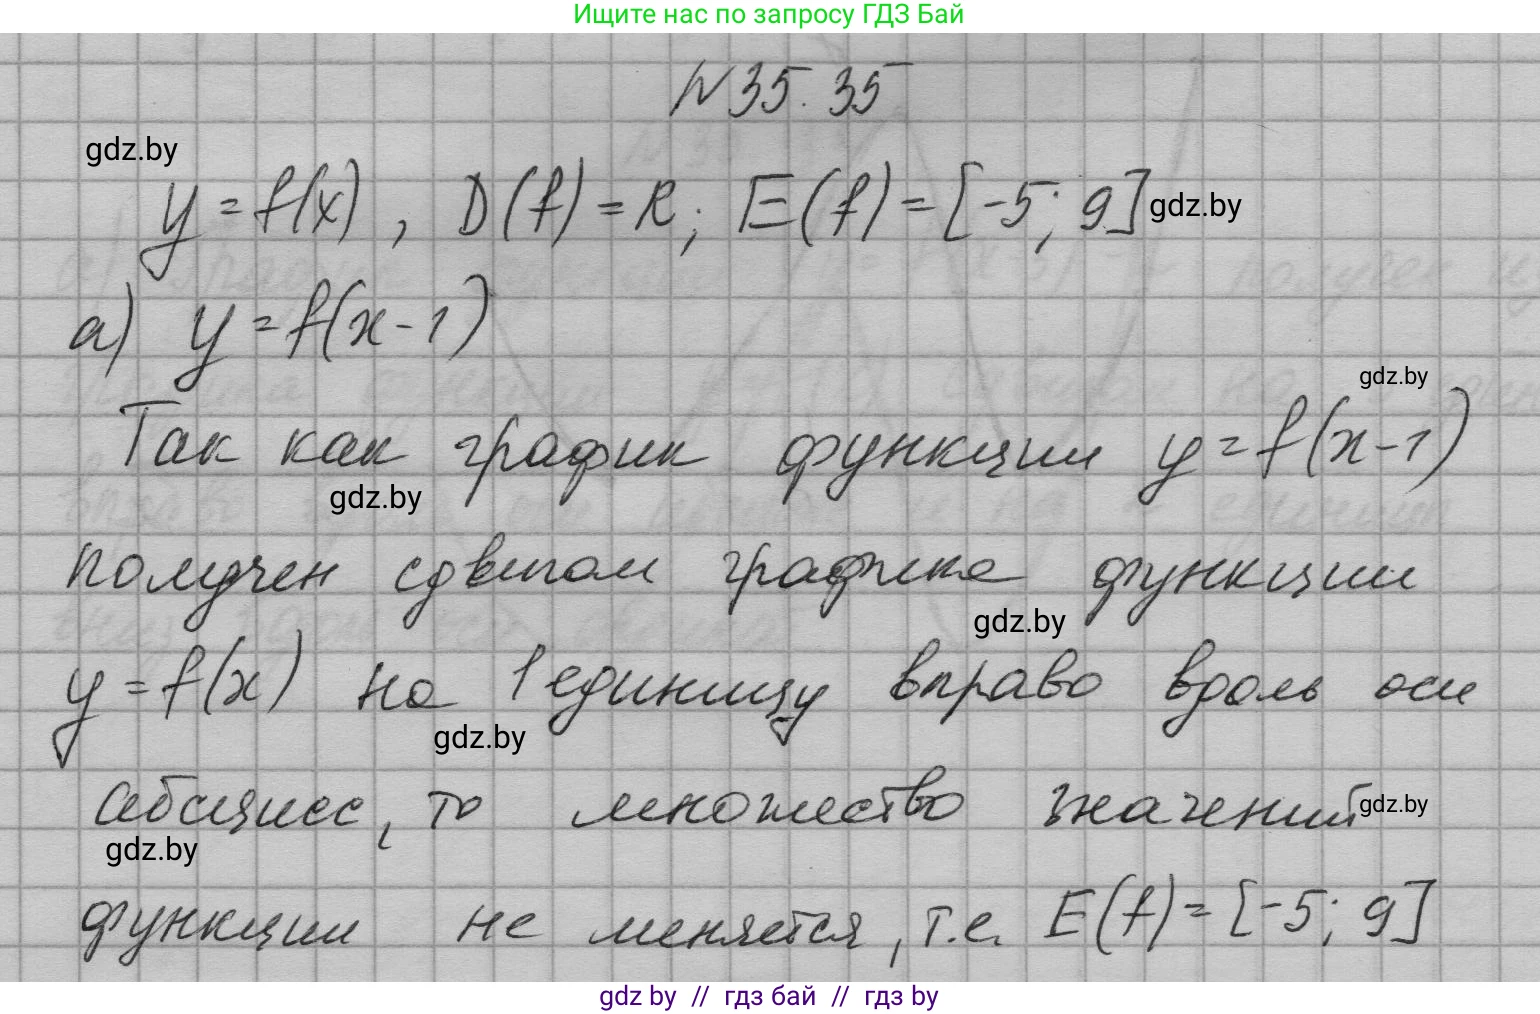 Ищите нас по запросу ГДЗ Бай
N 35.35
gdz.by
y = f(x), D(f) = R; E(f) = [-5; 9] gdz.by
а) y = f(x-1)
gdz.by
Так как график функции y = f(x-1)
gdz.by
получен сдвигом графика функции
gdz.by
y = f(x) на 1 единицу вправо вдоль оси
gdz.by
абсцисс, то множество значений gdz.by
gdz.by
функции не меняется, т.е. E(f) = [-5; 9]
gdz by // гдз бай // гдз by